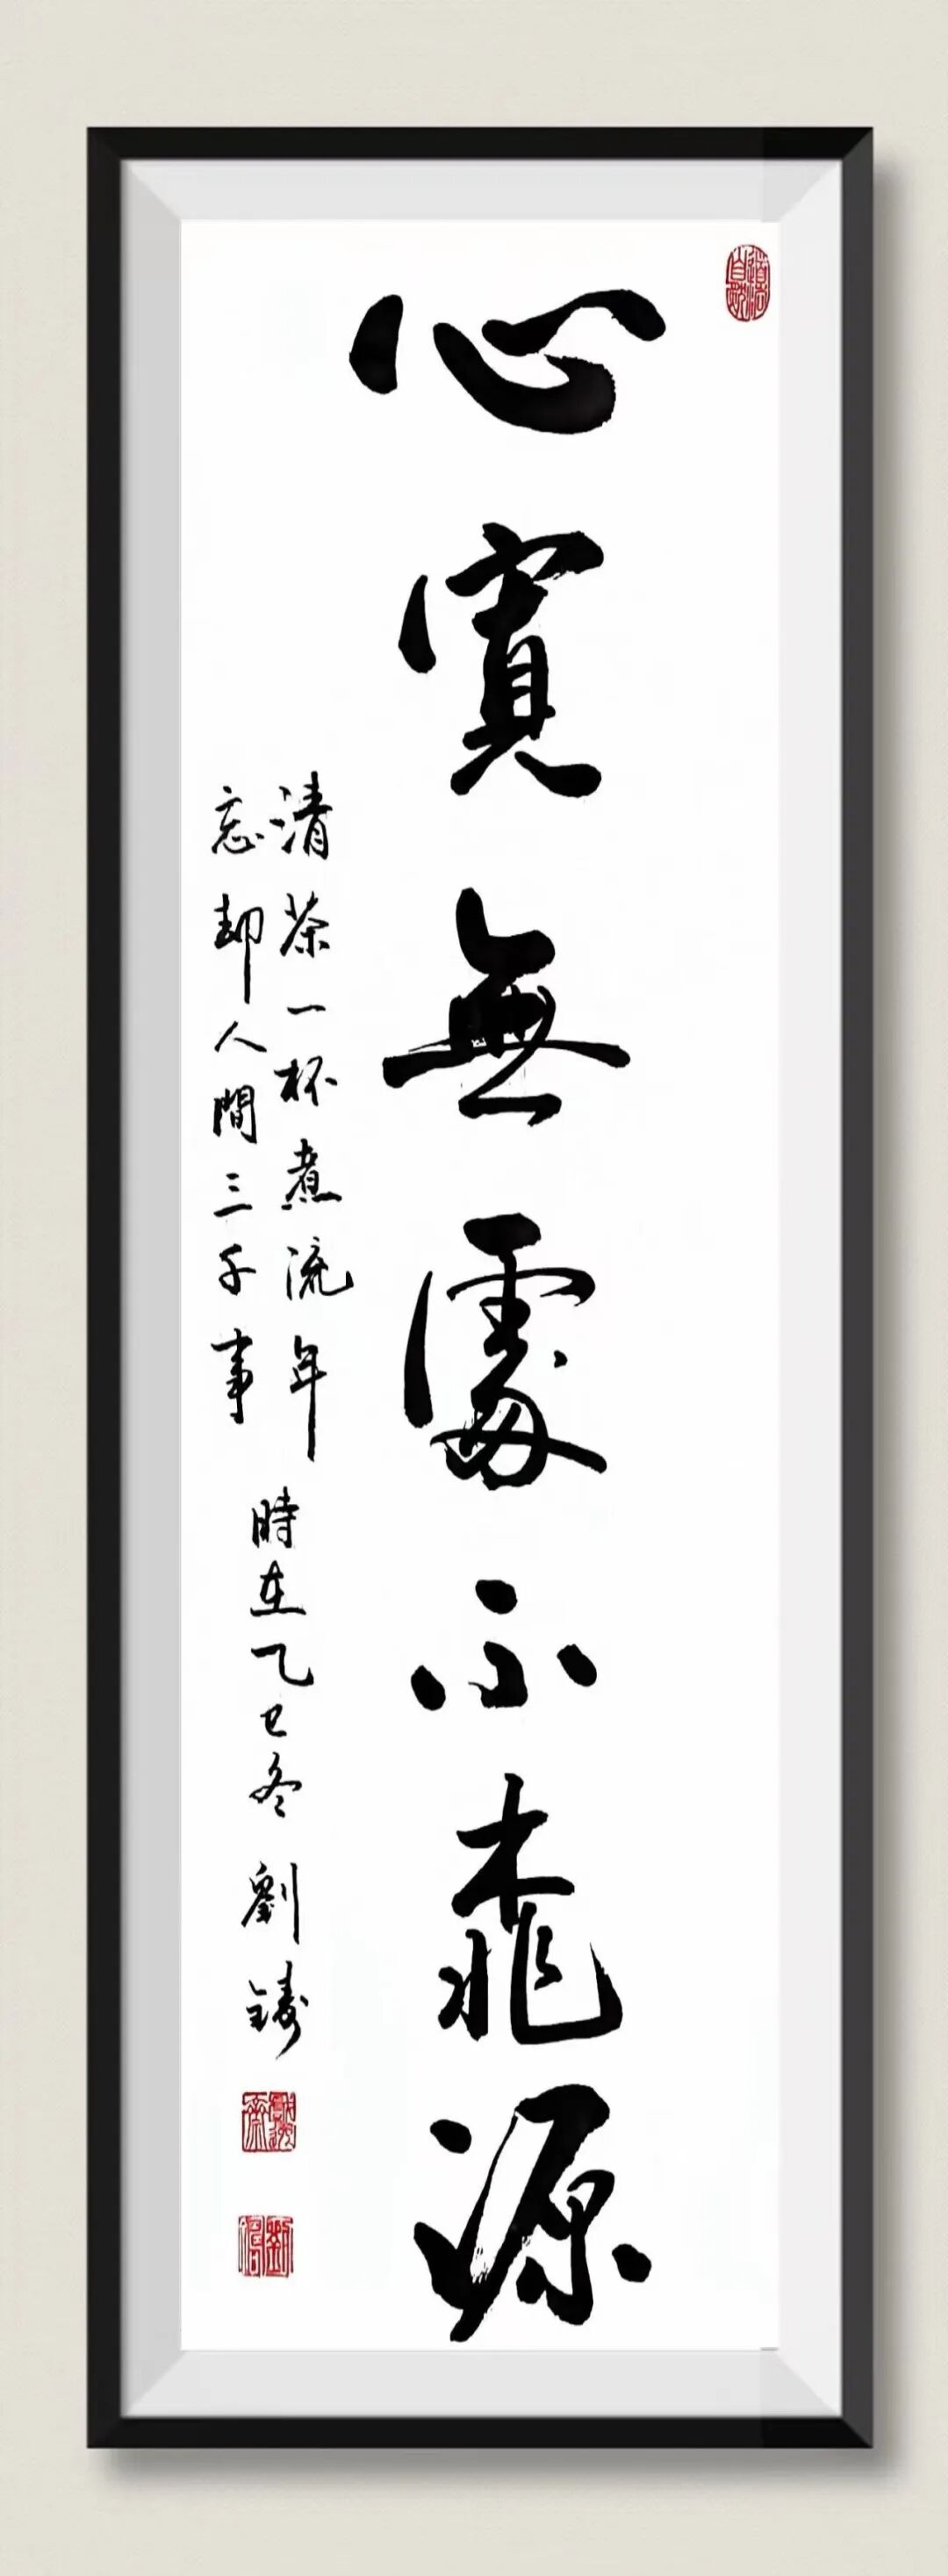 心寬無處不桃源
清茶一杯煮流年
忘却人間三千事
時在乙巳冬 劉鑄